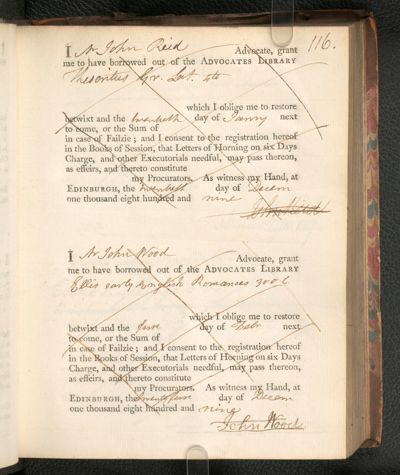 116.
I Mr John Reid Advocate, grant
me to have borrowed out of the ADVOCATES LIBRARY
Theocritus Gr. Lat. 4to
which I oblige me to restore
betwixt and the twentieth day of Janry next
to come, or the Sum of
in case of Failzie ; and I consent to the registration hereof
in the Books of Session, that Letters of Horning on six Days
Charge, and other Executorials needful, may pass thereon,
as effeirs, and thereto constitute
my Procurators. As witness my Hand, at
EDINBURGH, the twentieth day of Decem
one thousand eight hundred and nine
John Reid
I Mr John Wood Advocate, grant
me to have borrowed out of the ADVOCATES LIBRARY
Ellis early English Romances 3 vol
which I oblige me to restore
betwixt and the first day of Febr next
to come, or the Sum of
in case of Failzie ; and I consent to the registration hereof
in the Books of Session, that Letters of Horning on six Days
Charge, and other Executorials needful, may pass thereon,
as effeirs, and thereto constitute
my Procurators. As witness my Hand, at
EDINBURGH, the day of Decem
one thousand eight hundred and nine
John Wood